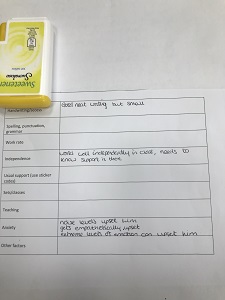 Sweetener
Sunshine
good neat writing but small
Spelling, punctuation,
grammar
Work rate
Independence
works well independently in class, needs to
know support is there
Usual support (use sticker
codes)
Sets/classes
Teaching
Anxiety
noise levels upset him
gets empathetically upset
extreme levels of emotion can upset him
Other factors